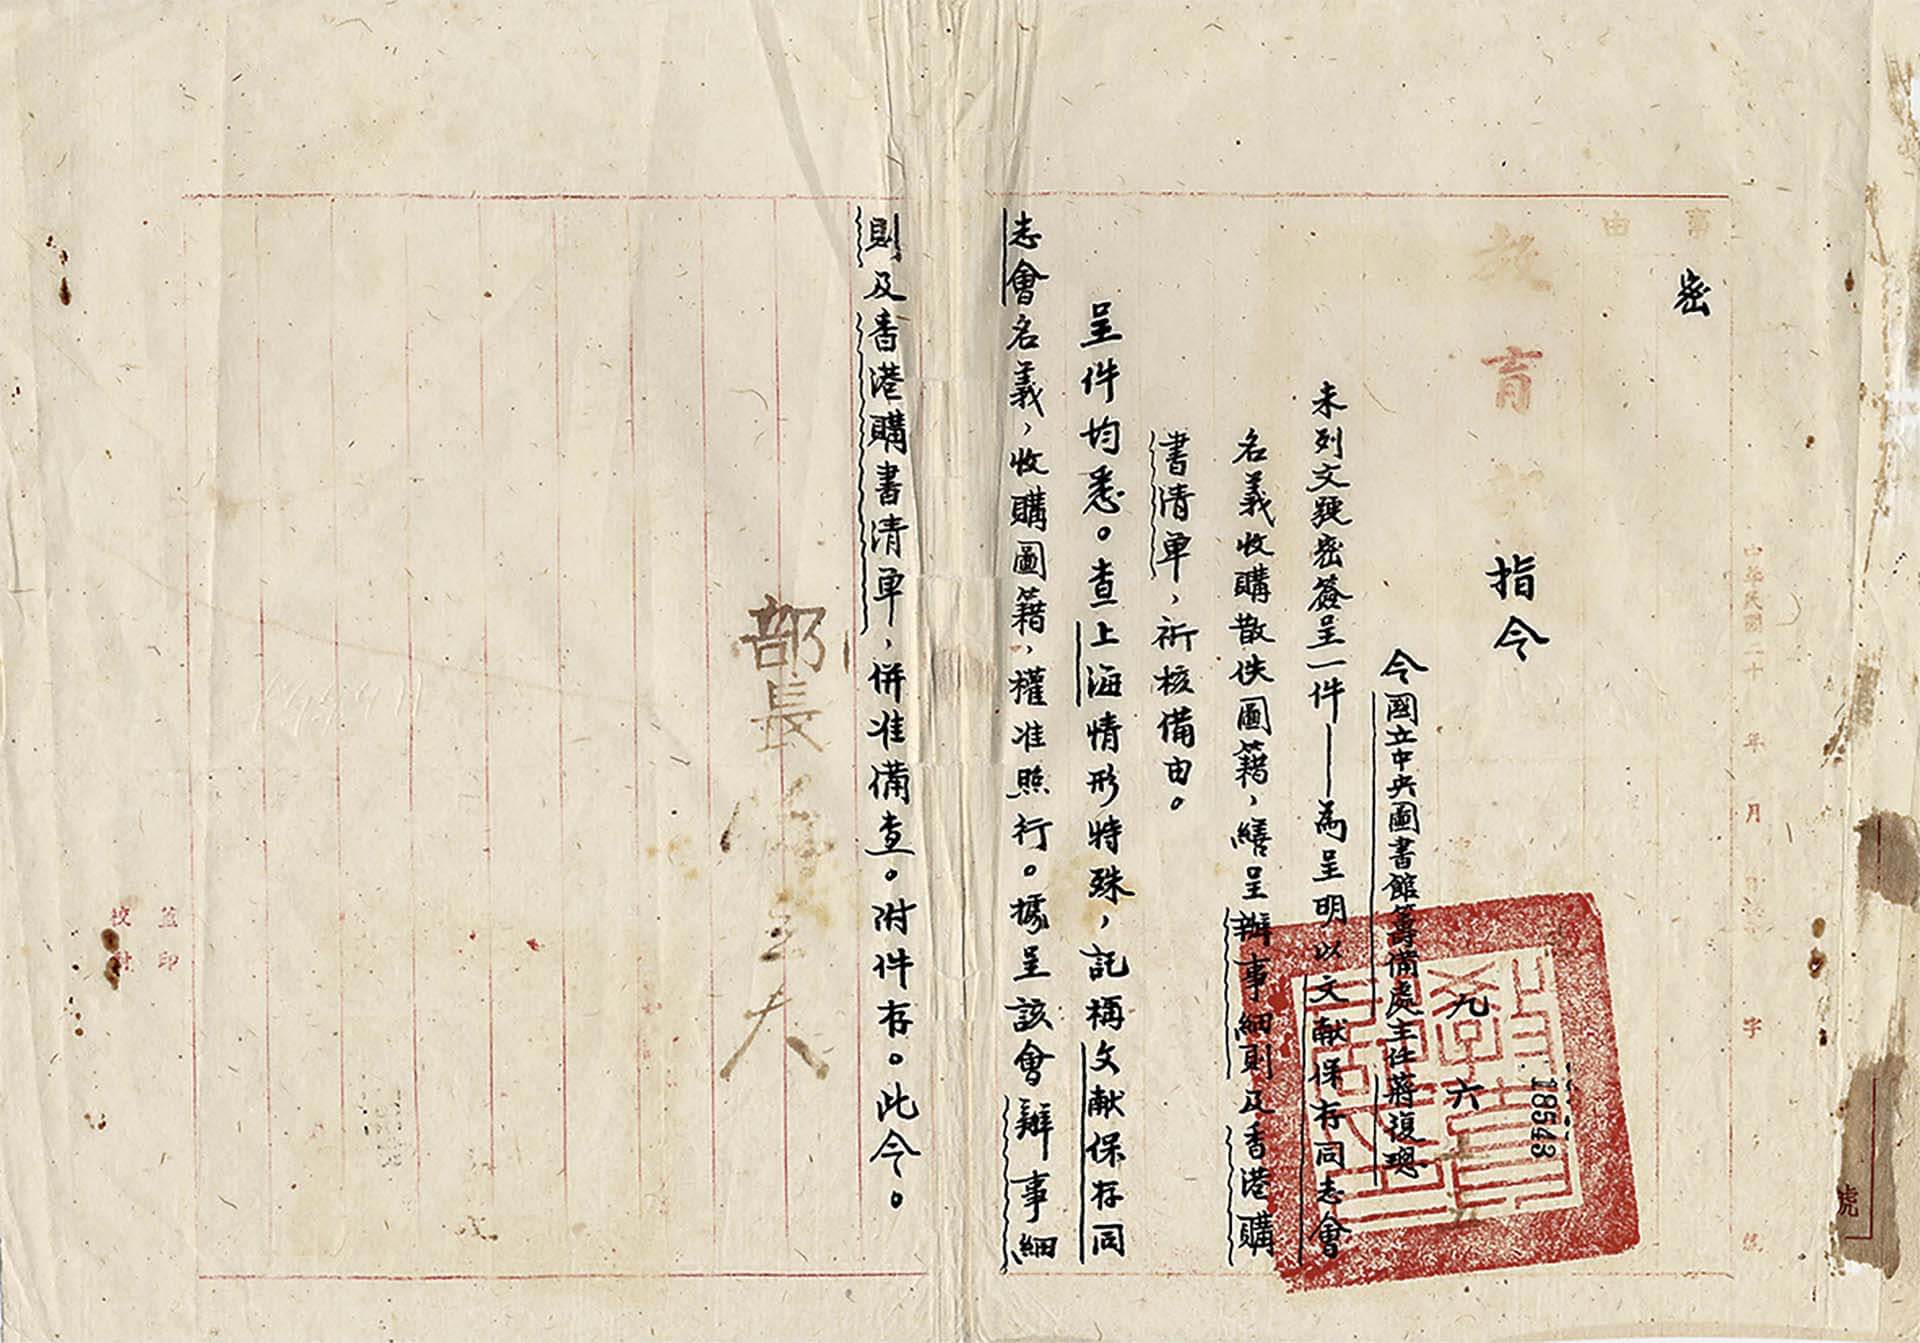 中華民國二十年月日字號
號
事由
密
教育部指令
18543
九六
令國立中央圖書館籌備處主任蔣復璁
未列文號密簽呈一件——為呈明以文献保存同志會
名義收購散佚圖籍,繕呈辦事細則及香港購
書清單,祈核備由。
呈件均悉。查上海情形特殊,託稱文献保存同
志會名義,收購圖籍,權准照行。據呈該會辦事細
則及香港購書清單,併准備查。附件存。此令。
部長
蓋印
校對